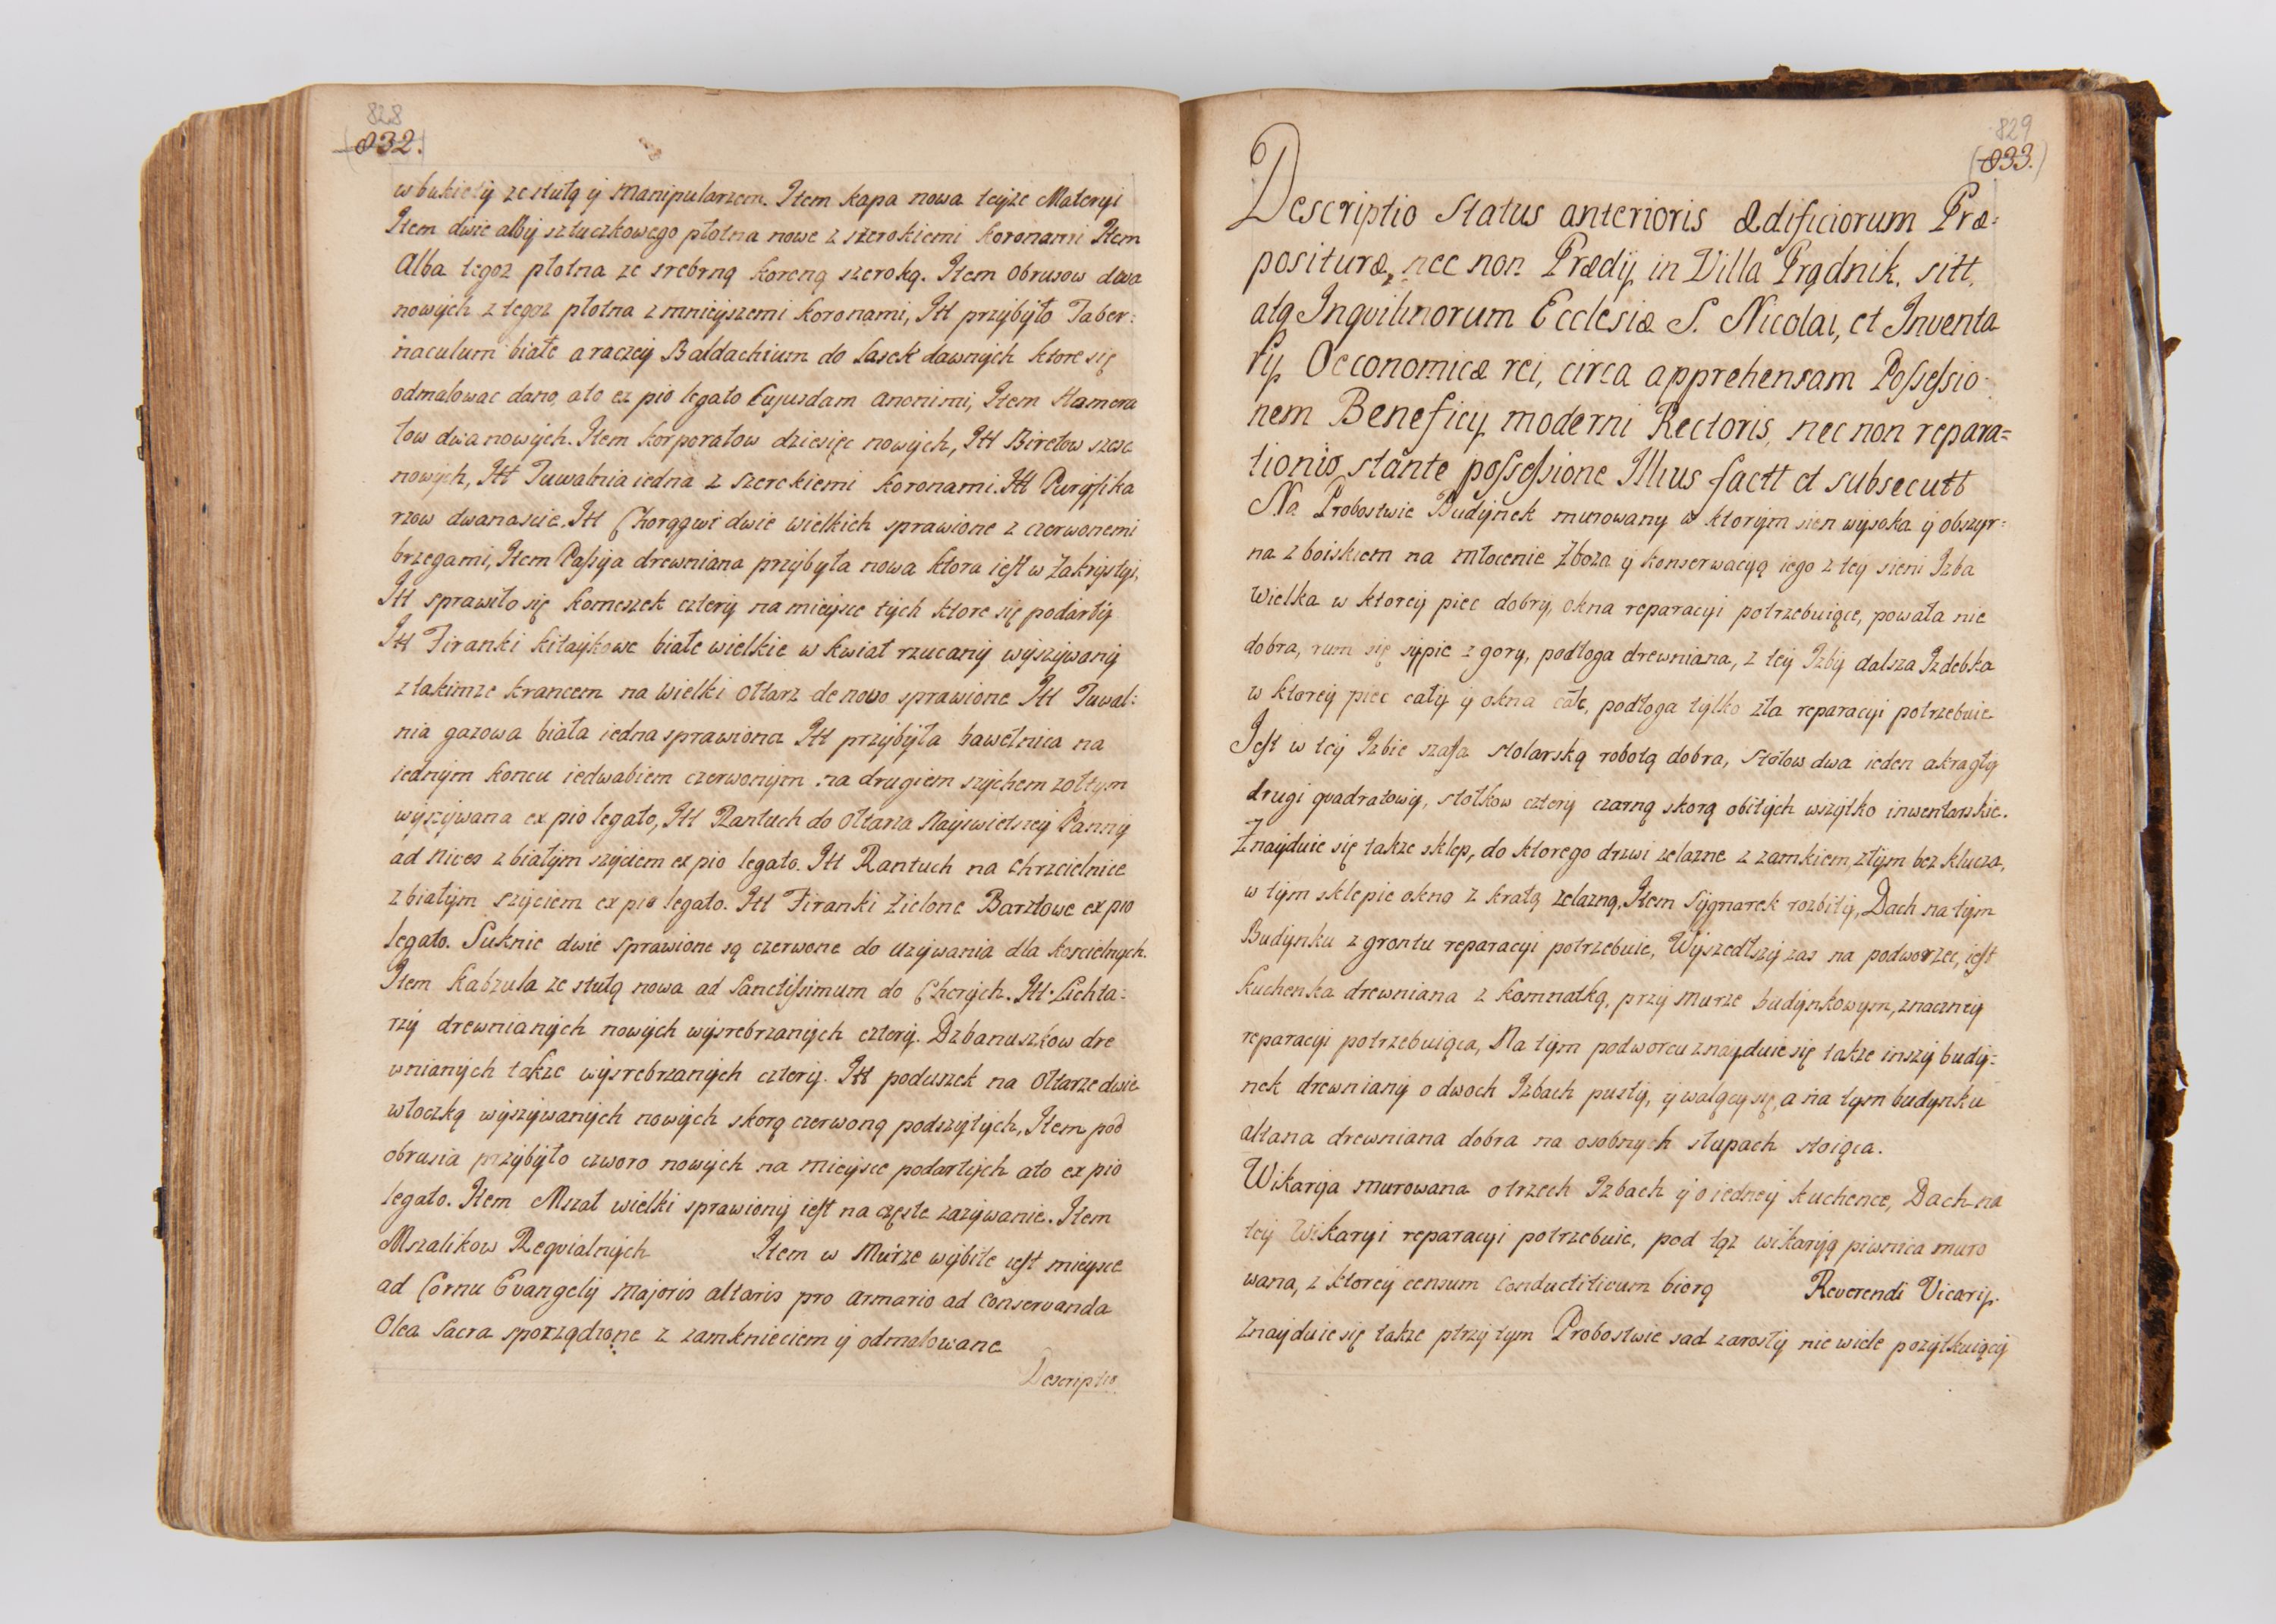 828
832.
w bukiety ze stułą ÿ Manipularzem. Item kapa nowa teÿze Materyi
Item dwie alby sztuczkowego płotna nowe z szerokiemi koronami Item
Alba tegoz płotna ze srebrną koroną szeroką. Item Obrusow dwa
nowÿch z tegoz płotna z mnieÿszemi koronami, Itt przÿbÿło Taber:
naculum białe a raczeÿ Baldachium do Lasek dawnÿch ktore się
odmalowac dano, ato ex pio legato Cujusdam Anonimi, Item Humera
łow dwa nowÿch. Item korporałow dziesięc nowÿch, Itt Biretow szesc
nowÿch, Itt Tuwalnia iedna z szerokiemi koronami. Itt Puryfika
rzow dwanascie. Itt Chorągwi dwie wielkich sprawione z czerwonemi
brzegami, Item Passÿa drewniana przÿbÿła nowa ktora iest w Zakrystÿi,
Itt sprawiło się komeszek czterÿ na mieysce tÿch ktore się podartÿ
Itt Firanki kitaykowe białe wielkie w kwiat rzucanÿ wÿszÿwanÿ
z takimze krancem na wielki Ołtarz de novo sprawione Itt Tuwal:
nia gazowa biała iedna sprawiona Itt przÿbÿła bawełnica na
iednÿm koncu iedwabiem czerwonÿm na drugiem szÿchem zołtÿm
wÿszÿwana ex pio legato, Itt Rantuch do Ołtarza Nayswietszeÿ Pannÿ
ad Nives z białÿm szÿciem ex pio legato. Itt Rantuch na Chrzcielnice
z białÿm szÿciem ex pio legato. Itt Firanki Zielone Barztowe ex pio
legato. Suknie dwie sprawione są czerwone do uzÿwania dla koscielnÿch.
Item Kabzula ze stułą nowa ad Sanctissimum do Chorÿch. Itt. Lichta:
rzÿ drewnianÿch nowÿch wÿsrebrzanÿch czterÿ. Dzbanuszkow dre
wnianÿch takze wÿsrebrzanÿch czterÿ. Itt poduszek na Ołtarze dwie
włoczką wÿszÿwanÿch nowÿch skorą czerwoną podszÿtÿch, Item pod
obrusia przÿbÿło czworo nowÿch na mieÿsce podartÿch ato ex pio
legato. Item Mszał wielki sprawionÿ iest na częste zazÿwanie. Item
Mszalikow Reqvialnÿch Item w Murze wÿbite iest mieÿsce
ad Cornu Evangelÿ Majoris altaris pro Armario ad Conservanda
Olea Sacra sporządzone z zamknieciem ÿ odmalowane
Descriptio
829
(833.)
Descriptio Status anterioris Ædificiorum Præ:
posituræ, nec non Prædÿ in Villa Prądnik. sitt,
atq Inqvilinorum Ecclesiæ S. Nicolai, et Inventa
rÿ Oeconomicæ rei, circa apprehensam Possessio:
nem Beneficÿ moderni Rectoris, nec non repara=
tionis, stante possessione Illius factt et subsecutt
Na Probostwie Budÿnek murowany w ktorÿm sien wÿsoka ÿ obszyr=
na z boiskiem na młocenie Zboza ÿ konserwacyą iego z teÿ sieni Izba
Wielka w ktoreÿ piec dobry, okna reparacyi potrzebuiące, powała nie
dobra, rum się sÿpie z gory, podłoga drewniana, z teÿ Izbÿ dalsza Izdebka
w ktoreÿ piec całÿ ÿ okna całe, podłoga tÿlko zła reparacyi potrzebuie
Jest w teÿ Izbie szafa stolarską robotą dobra, Stołow dwa ieden okragłÿ
drugi qvadratowÿ, stołkow czterÿ czarną skorą obitÿch wszÿtko inwentarskie.
Znaÿduie się takze sklep, do ktorego drzwi zelazne z zamkiem, złÿm bez klucza,
w tÿm sklepie okno z kratą zelazną, Item Sÿgnarek rozbitÿ, Dach na tÿm
Budÿnku z gruntu reparacyi potrzebuie, Wÿszedłszÿ zas na podworzec, iest
kuchenka drewniana z komnatką, przÿ murze budÿnkowym, znaczneÿ
reparacyi potrzebuiąca, Na tÿm podworcu znaÿduie się takze inszÿ budÿ:
nek drewnianÿ o dwoch Izbach pustÿ, ÿ walącÿ się, a na tym budynku
altana drewniana dobra na osobnÿch słupach stoiąca.
Wikarÿa murowana o trzech Izbach ÿ o iedneÿ kuchence, Dach na
teÿ Wikarÿi reparacyi potrzebuie, pod tąz wikarÿą piwnica muro
wana, z ktoreÿ censum Conductitium biorą Reverendi Vicarÿ.
Znaÿduie się takze przÿ tym Probostwie sad zarosłÿ nie wiele pozÿtkuiącÿ